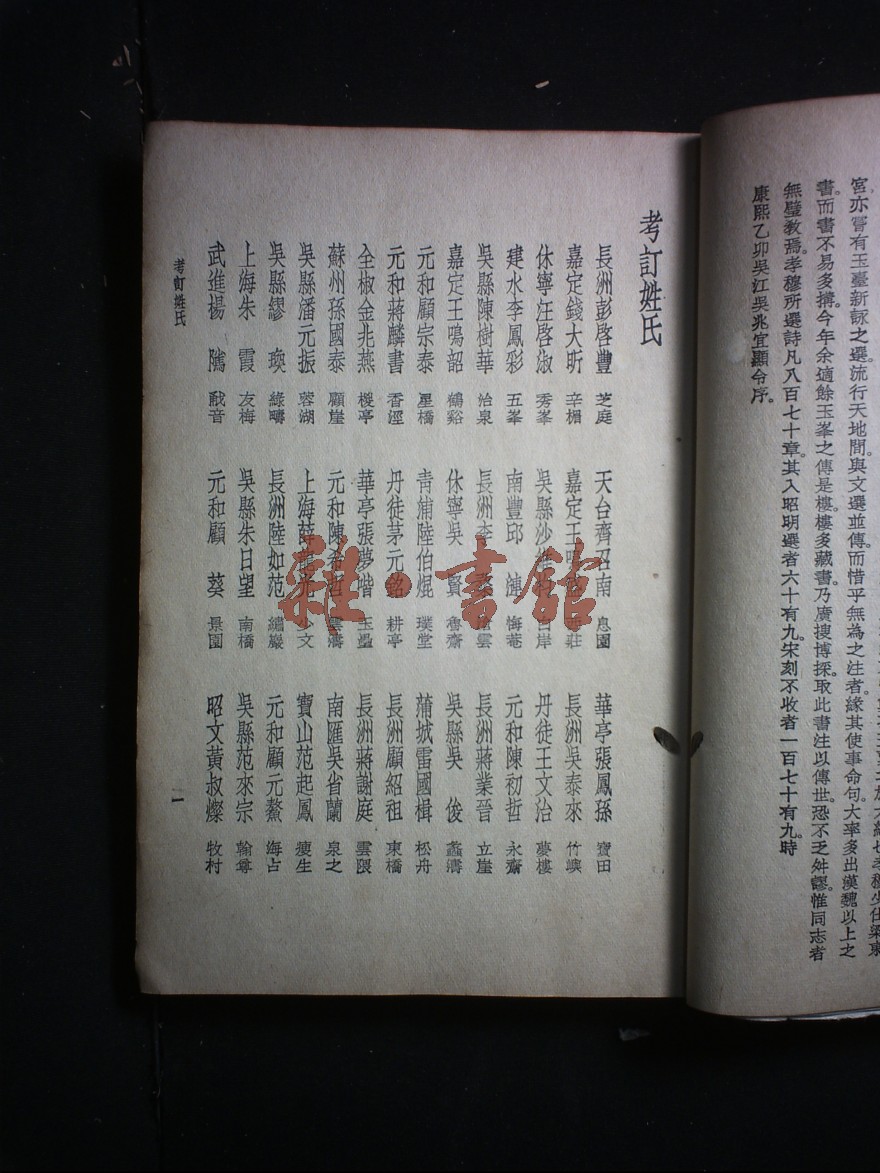 宮亦嘗有玉臺新詠之選。流行天地間。與文選並傳。而惜乎無為之注者。緣其使事命句。大率多出漢魏以上之
書。而書不易多搆。今年余適餘玉峯之傳是樓。樓多藏書。乃廣搜博採。取此書注以傳世。恐不乏舛謬。惟同志者
無璧教焉。孝穆所選詩凡八百七十章。其入昭明選者六十有九。宋刻不收者一百七十有九。時
康熙乙卯吳江吳兆宜顯令序。
考訂姓氏
長洲彭啓豐 芝庭 天台齊召南 息園 華亭張鳳孫 寶田
嘉定錢大昕 辛楣 嘉定王鳴 莊 長洲吳泰來 竹嶼
休寧汪啓淑 秀峯 吳縣沙維 白岸 丹徒王文治 夢樓
建水李鳳彩 五峯 南豐邱 漣 悔菴 元和陳初哲 永齋
吳縣陳樹華 冶泉 長洲李 雲 長洲蔣業晉 立崖
嘉定王鳴韶 鶴谿 休寧吳 賢 魯齋 吳縣吳 俊 蠡濤
元和顧宗泰 星橋 青浦陸伯焜 璞堂 蒲城雷國楫 松舟
元和蔣麟書 香涇 丹徒茅元銘 耕亭 長洲顧紹祖 東橋
全椒金兆燕 椶亭 華亭張夢喈 玉壘 長洲蔣謝庭 雲隈
蘇州孫國泰 顧崖 元和陳希哲 雲濤 南匯吳省蘭 泉之
吳縣潘元振 蓉湖 上海薛 少文 寶山范起鳳 瘦生
吳縣繆 瑍 綠疇 長洲陸如范 繡巖 元和顧元鰲 海占
上海朱 霞 友梅 吳縣朱日望 南橋 吳縣范來宗 翰尊
武進楊 隲 猷音 元和顧 葵 景園 昭文黃叔燦 牧村
考訂姓氏
一
雜·書館